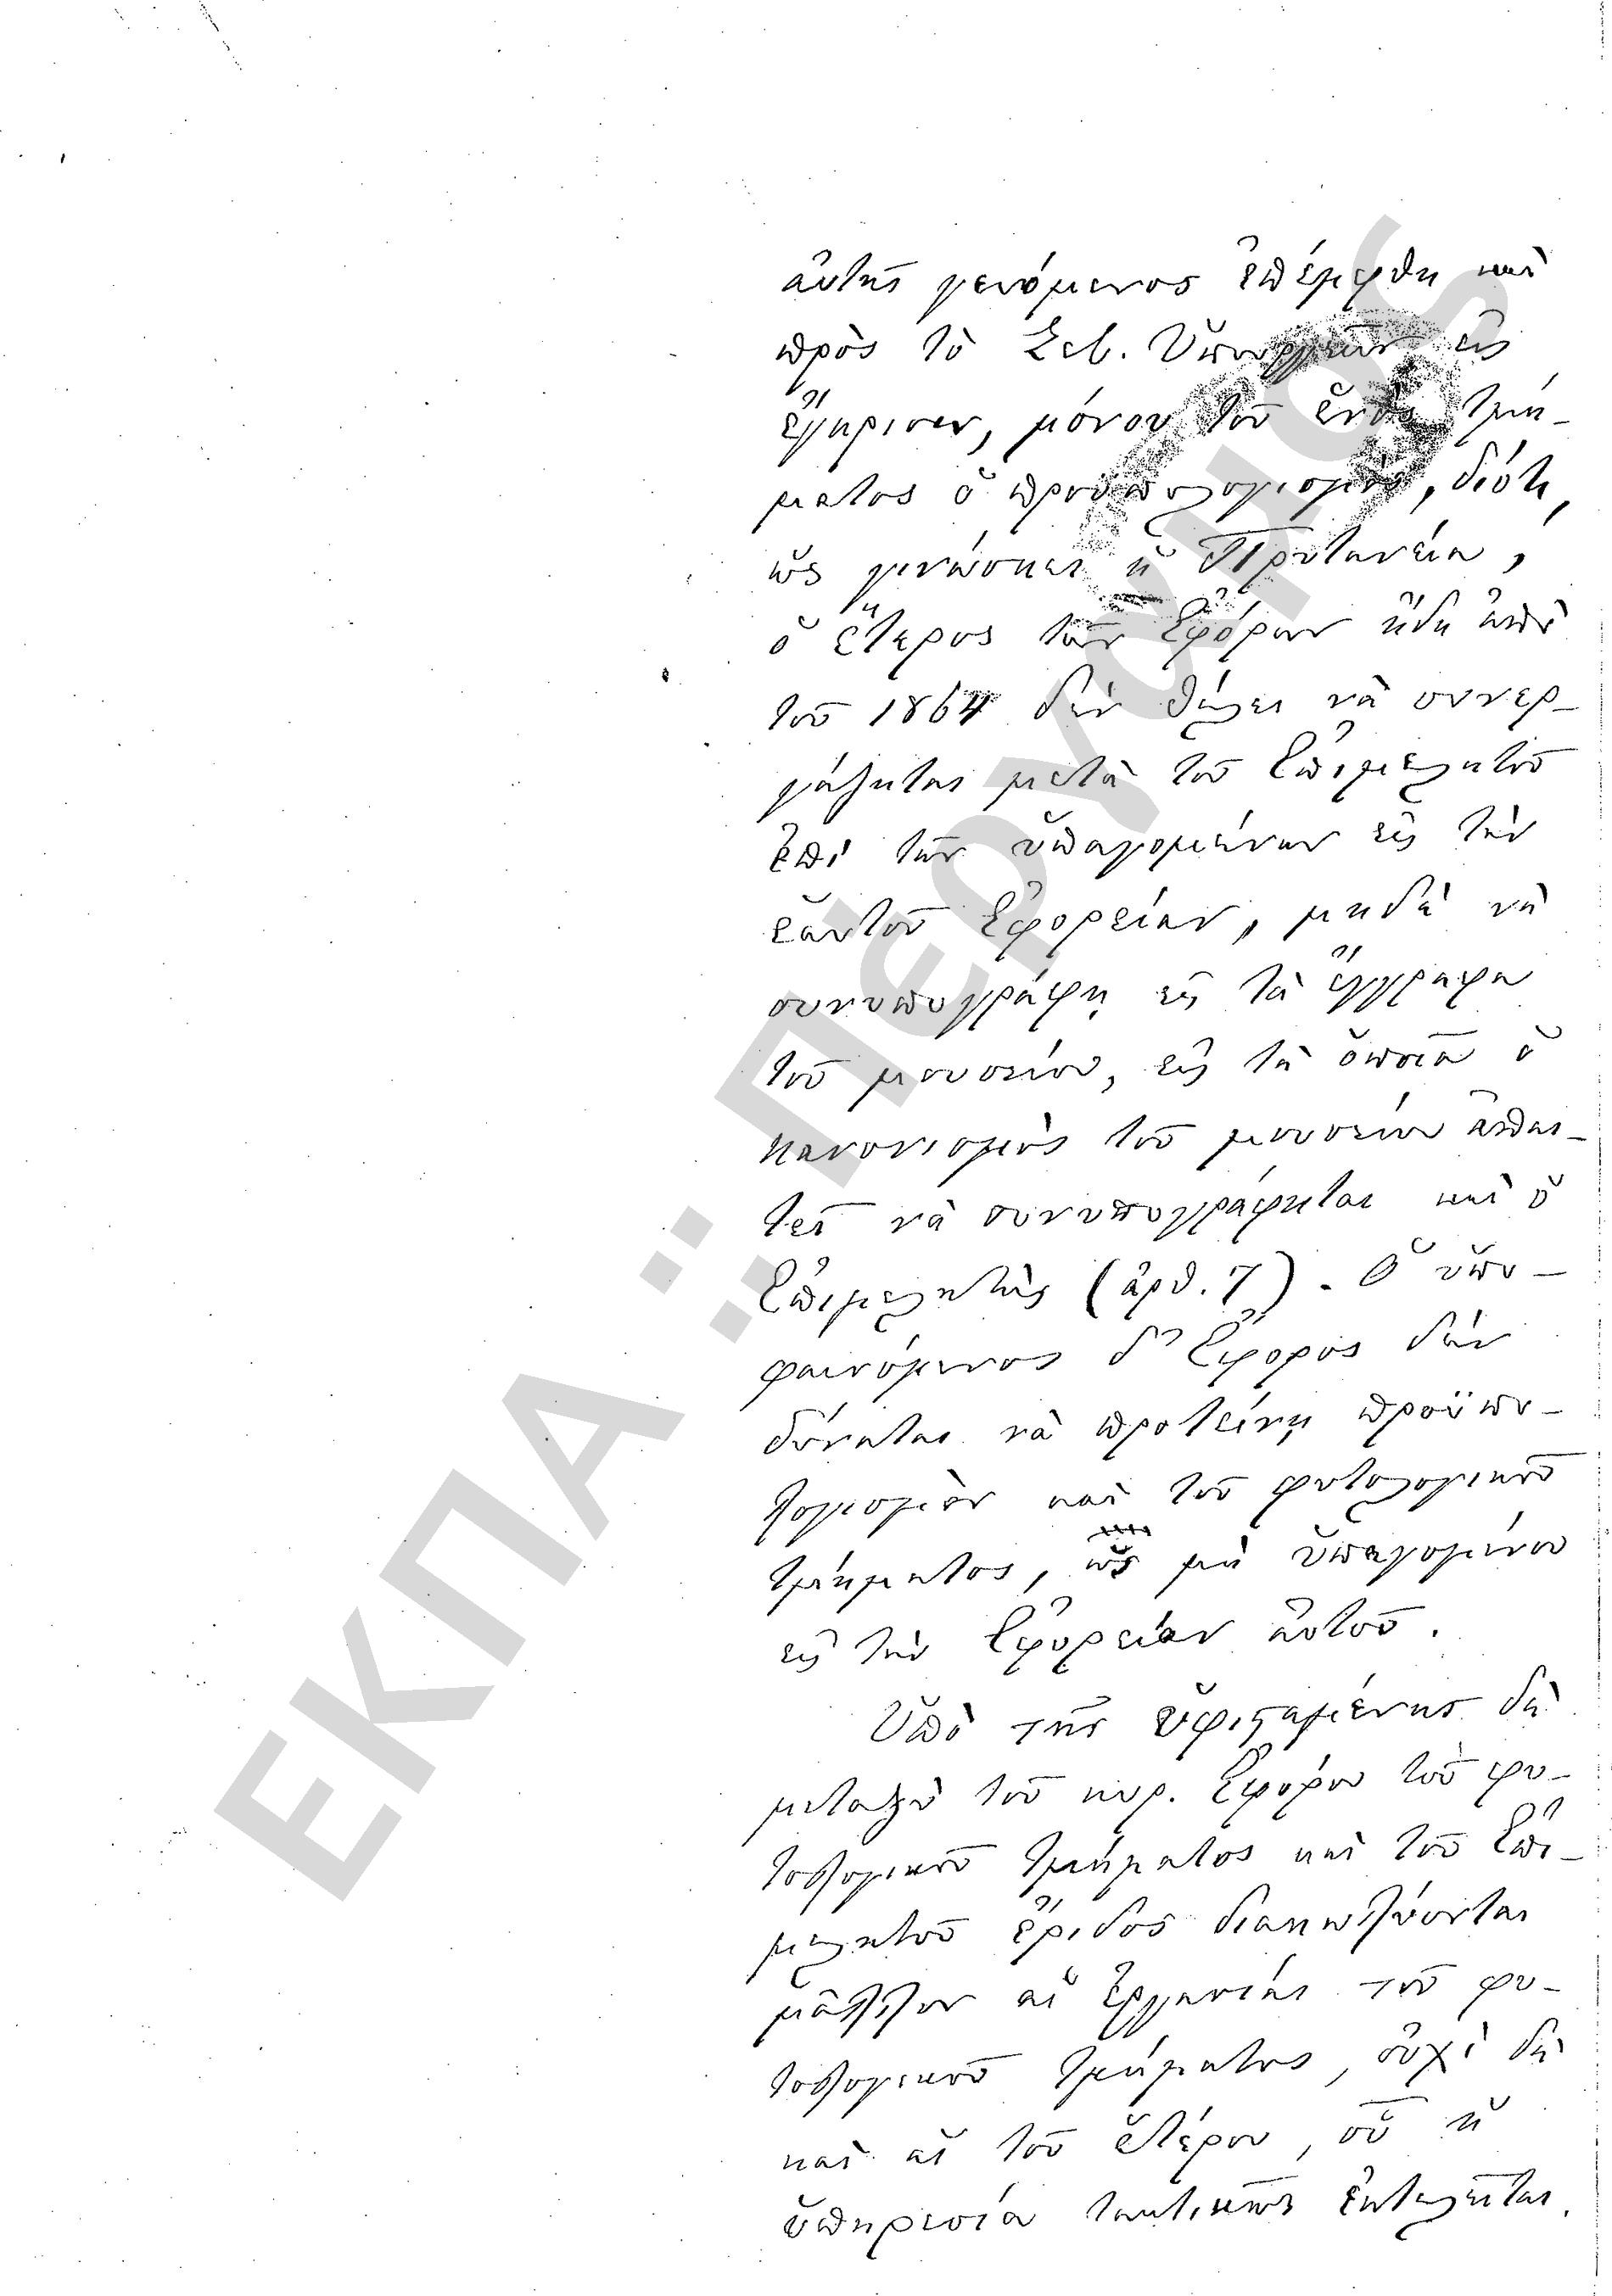 αὐτῆς γενόμενος ἐπέμφθη καὶ
πρὸς τὸ Σεβ. Ὑπουργεῖον εἰς
ἔγκρισιν, μόνον τοῦ ἑνὸς τμή-
ματος ὁ προϋπολογισμὸς, διότι,
ὡς γινώσκει ἡ Πρυτανεία,
ὁ ἕτερος τῶν Ἐφόρων ἤδη ἀπὸ
τοῦ 1864 δὲν θέλει νὰ συνερ-
γάζηται μετὰ τοῦ Ἐπιμελητοῦ
ἐπὶ τῶν ὑπαγομένων εἰς τὴν
ἑαυτοῦ Ἐφορείαν, μηδὲ νὰ
συνυπογράφῃ εἰς τὰ ἔγγραφα
τοῦ μουσείου, εἰς τὰ ὁποῖα ὁ
κανονισμὸς τοῦ μουσείου ἀπαι-
τεῖ νὰ συνυπογράφηται καὶ ὁ
Ἐπιμελητὴς (ἀρθ. 7). Ὁ ὑπο-
φαινόμενος δ' Ἔφορος δὲν
δύναται νὰ προτείνῃ προϋπο-
λογισμὸν καὶ τοῦ φυτολογικοῦ
τμήματος, ὡς μὴ ὑπαγομένου
εἰς τὴν Ἐφορείαν αὐτοῦ.
Ὑπὸ τῆς ὑφισταμένης δὲ
μεταξὺ τοῦ κυρ. Ἐφόρου τοῦ φυ-
τολογικοῦ τμήματος καὶ τοῦ Ἐπι-
μελητοῦ ἔριδος διακωλύονται
μᾶλλον αἱ ἐργασίαι τοῦ φυ-
τολογικοῦ τμήματος, οὐχὶ δὲ
καὶ αἱ τοῦ ἑτέρου, οὗ ἡ
ὑπηρεσία τακτικῶς ἐκτελεῖται.
ΕΚΠΑ : Πέργαμος